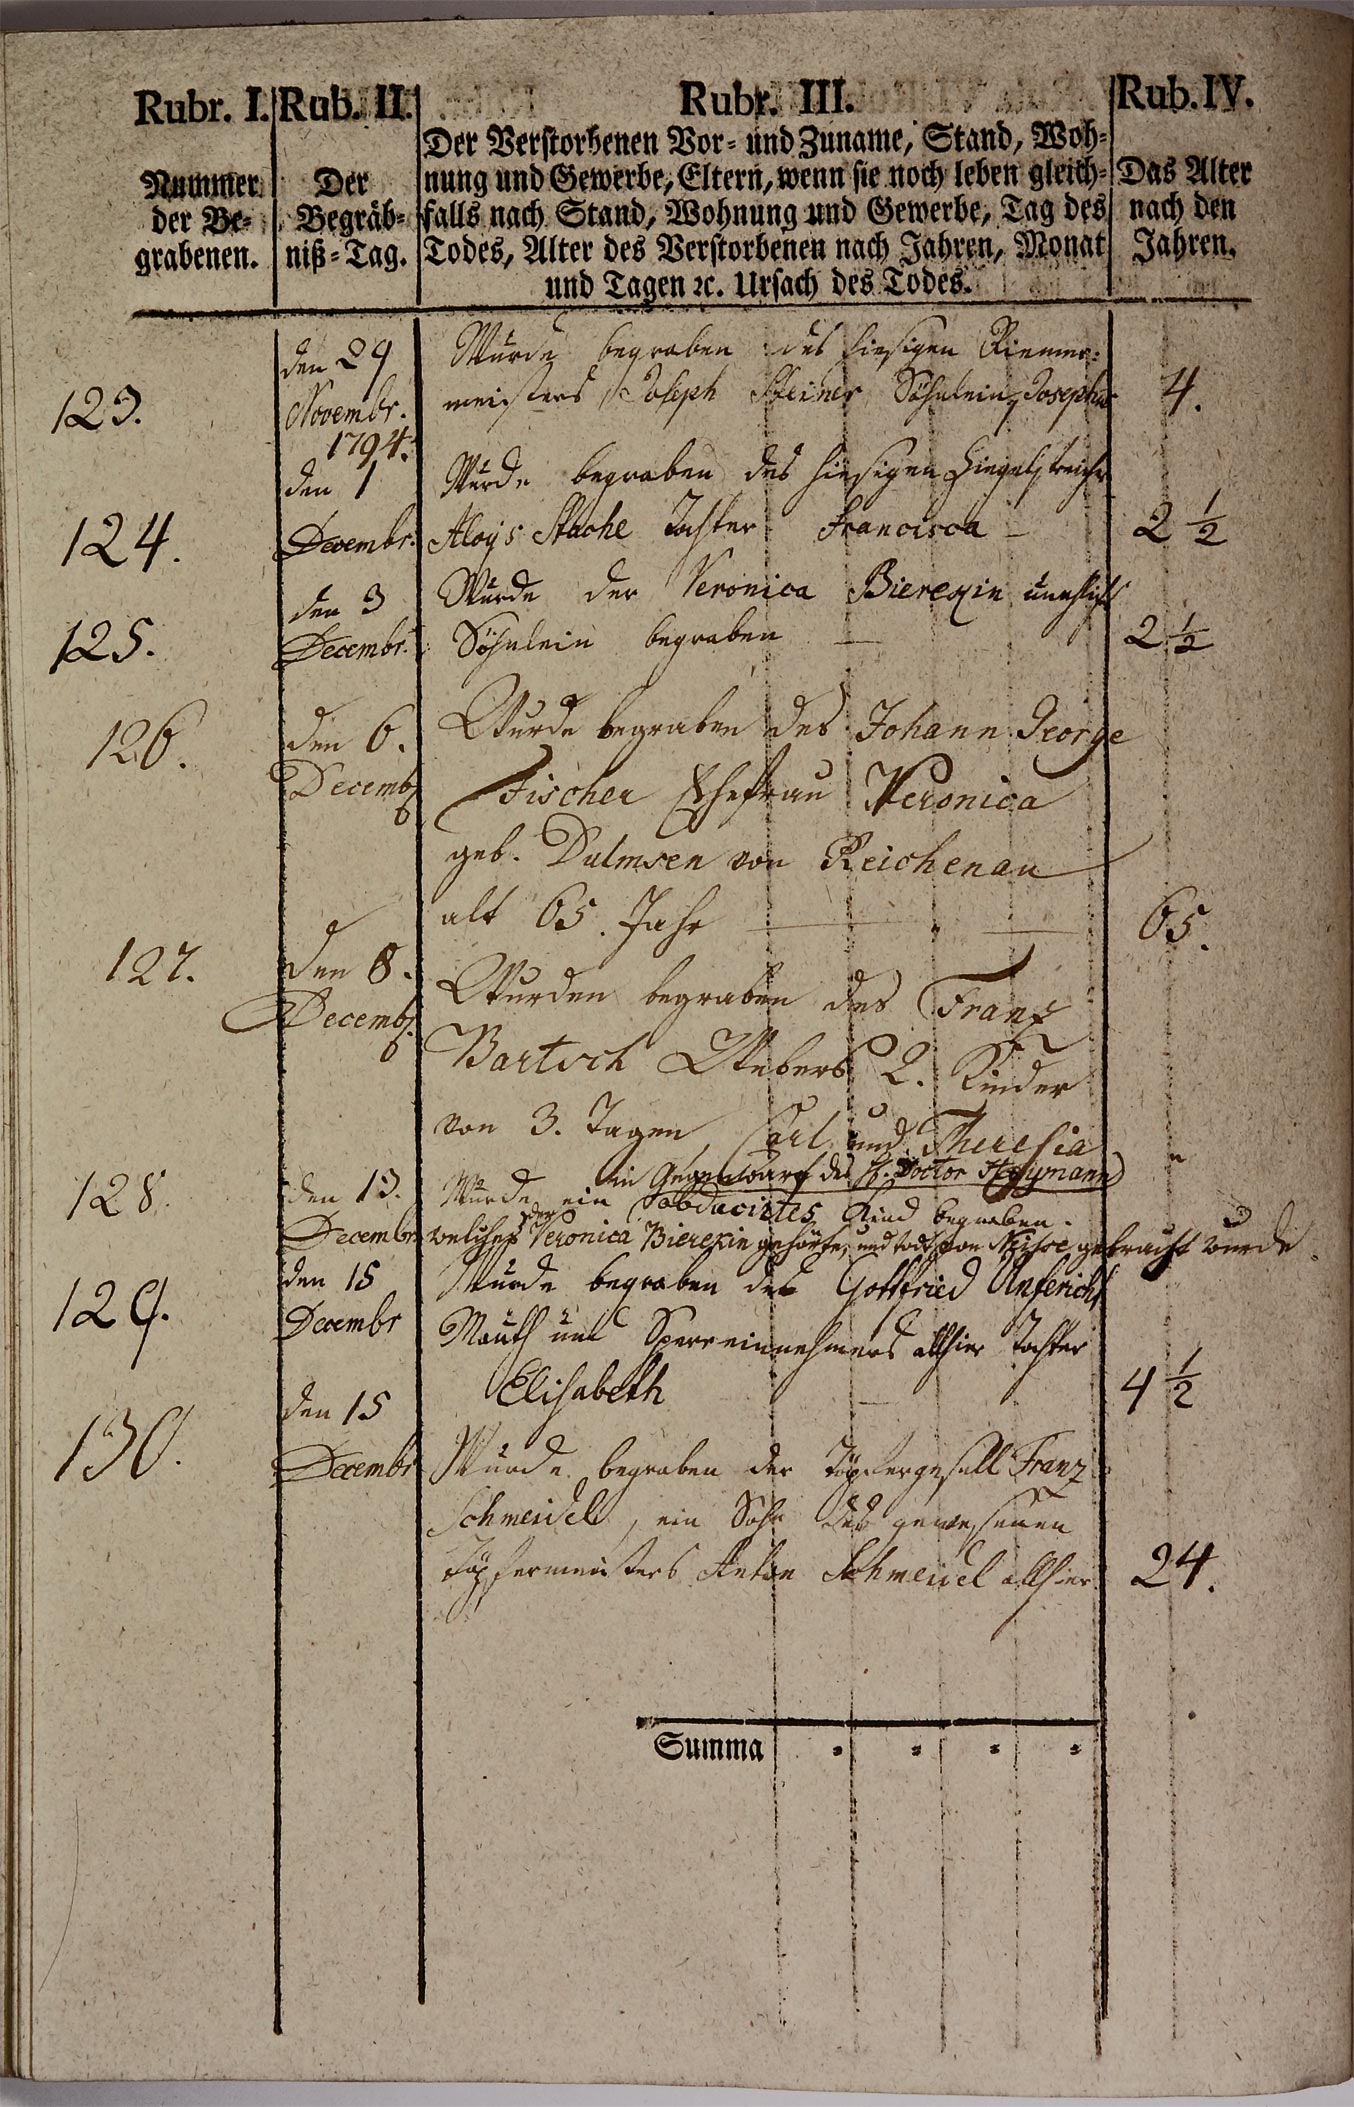 Rubr. I. Rub. II. Rubr. III. Rub. IV.
Nummer der Be-
grabenen.
Der
Begräb-
niß-Tag.
Der Verstorbenen Vor- und Zuname, Stand, Woh-
nung und Gewerbe, Eltern, wenn sie noch leben gleich-
falls nach Stand, Wohnung und Gewerbe, Tag des
Todes, Alter des Verstorbenen nach Jahren, Monat
und Tagen ꝛc. Ursach des Todes.
Das Alter
nach den
Jahren.
123.
den 29
Novembr.
1794.
Wurde begraben des hiesigen Riemer-
meisters Joseph Steiner Söhnlein Josephus
4.
124.
den 1
Decembr.
Wurde begraben des hiesigen Ziegelstreicher
Aloys Stache Tochter Francisca –
2 1/2
125.
den 3
Decembr.
Wurde der Veronica unehlich
Söhnlein begraben —
2 1/2
126.
den 6.
Decemb.
Wurde begraben des Johann George
Fischer Ehefrau Veronica
geb. von Reichenau
alt 65. Jahr
65.
127.
den 8.
Decemb.
Wurden begraben des Franz
Bartsch Webers 2. Kinder
von 3. Tagen, Carl und Theresia
128.
den 13.
Decembr.
in Gegenwart des H. Doctor Heymann
Wurde ein Kind begraben.
welches der Veronica gehörte, und todt von gebracht wurde.
129.
den 15
Decembr
Wurde begraben des Gottfried
Mauth und Sperreinnehmers allhier Tochter
Elisabeth —
4 1/2
130.
den 15
Decembr
Wurde begraben der Töpfergesell Franz
Schmeidel, ein Sohn des gewesenen
Töpfermeisters Anton Schmeidel allhier
24.
Summa